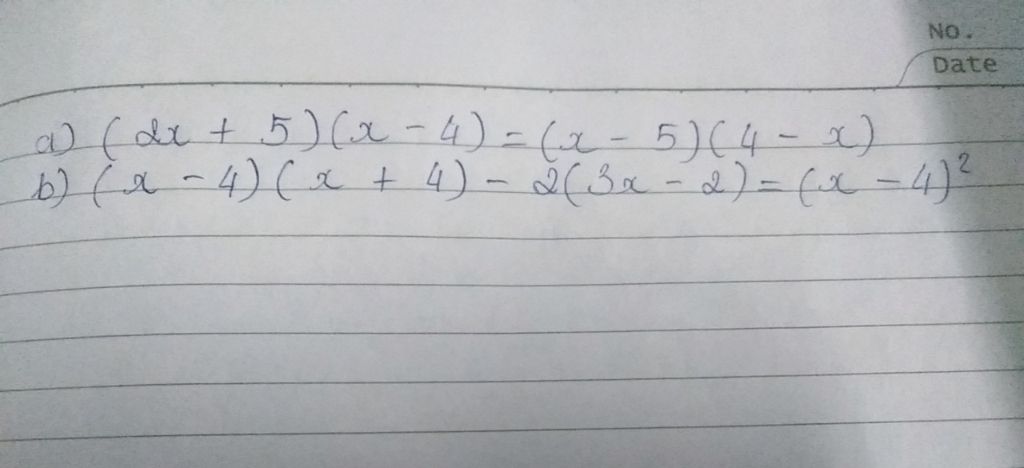 No.
Date
a) (2x + 5)(x - 4) = (x - 5)(4 - x)
b) (x - 4)(x + 4) - 2(3x - 2) = (x - 4)²